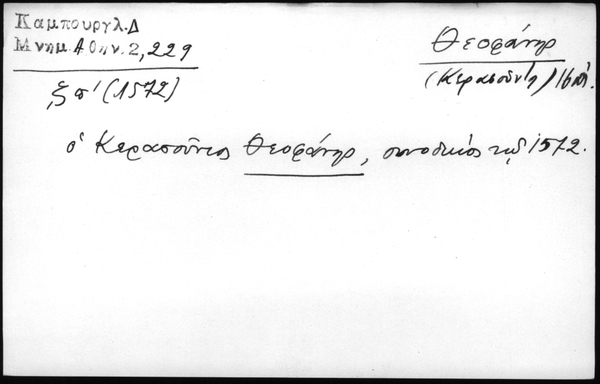 Καμπουργλ.Δ
Μνημ.Αθην.2,229
ζπ' (1572)
Θεοφάνης
(Κερασούντη) 16 αἰ.
ὁ Κερασοῦντος Θεοφάνης, συνοδικός τῷ 1572.